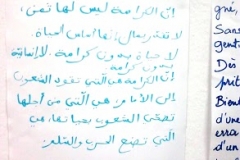 إنّ الكرامة ليس لها ثمن،
لا تقدر بمال إنّها أساس الحياة.
لا حياة بدون كرامة. لا إنسانية
بدون كرامة
إنّ الكرامة هي الّتي تقود الشعوب
إلى الأمام، هي الّتي من أجلها
تضحّي الشعوب بحياتها، هي
الّتي تصنع الحرب والسّلم.
gné,
Sans
gent
Dès
prit
Bien
d'une
erra
d'un